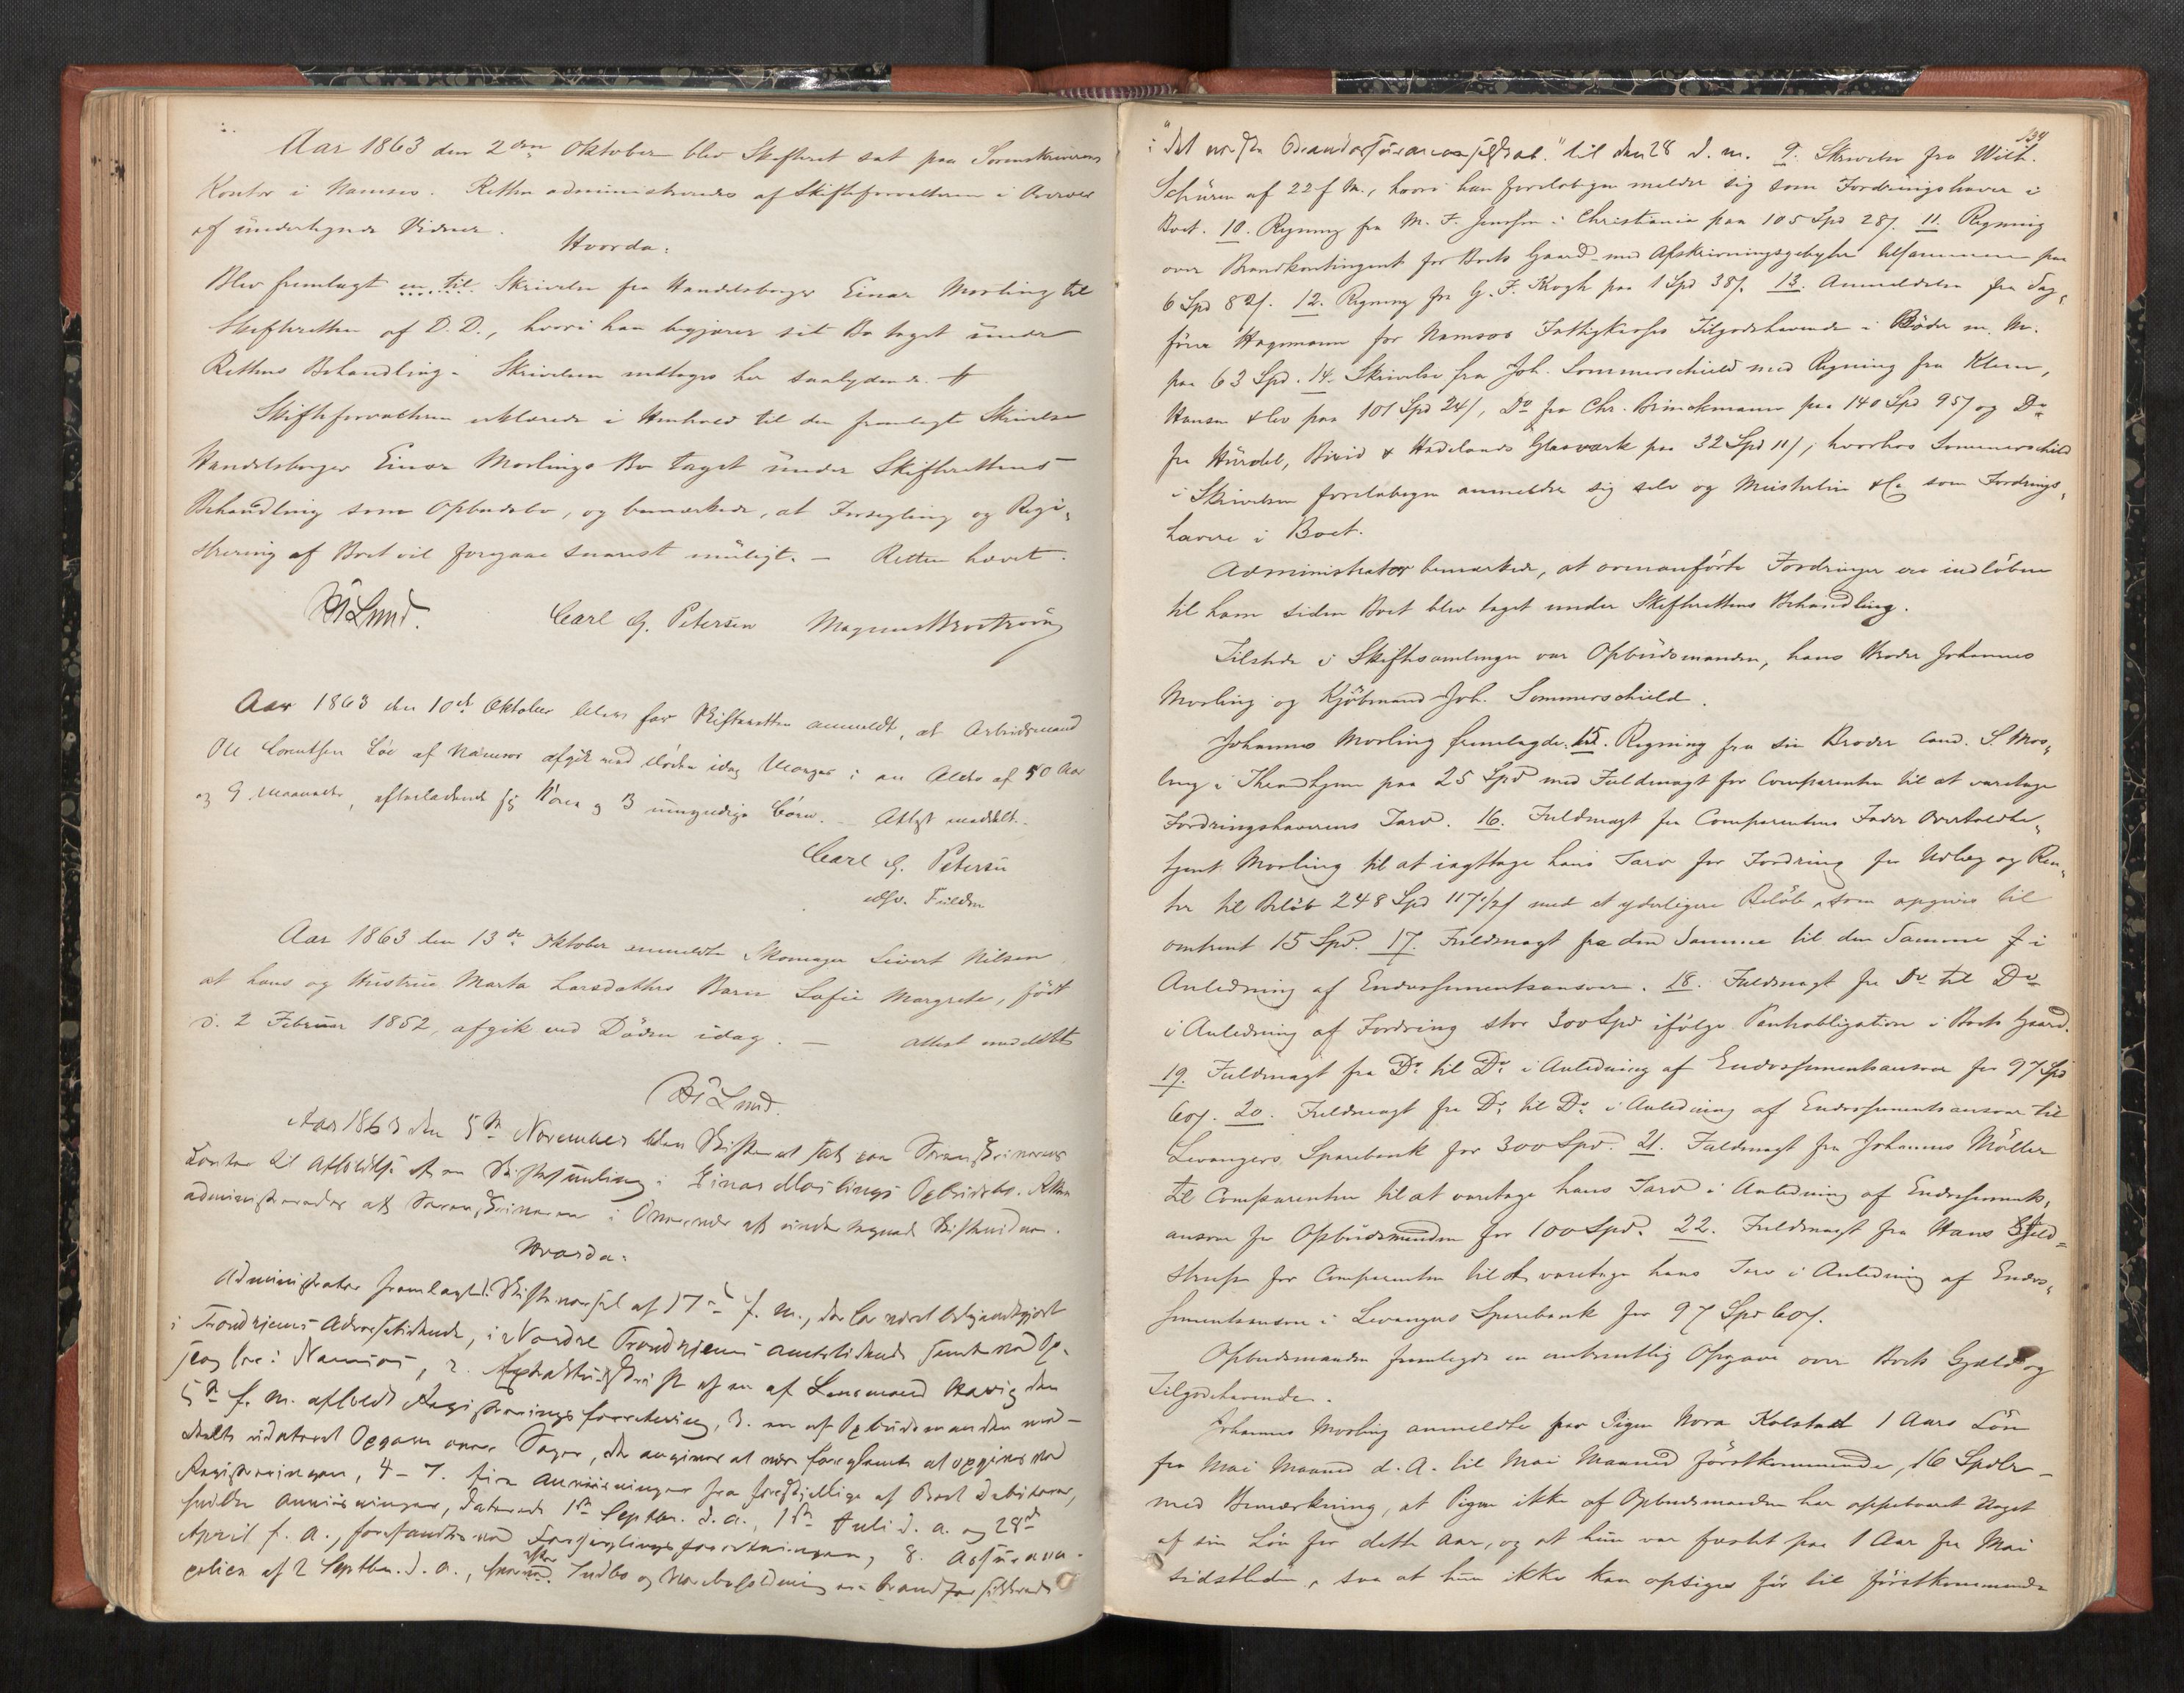 Aar 1863 den 2den Oktober blev Skifteret sat paa Sorenskriverens
Kontor i Namsos. Retten administreredes af Skifteforvalteren i Overvær
af undertegnede Vidner.
Hvorda:
Blev fremlagt en til Skrivelse fra Handelsborger Einar Morling til
Skifteretten af D.D., hvori han begjærer sit Bo taget under
Rettens Behandling. Skrivelsen indtages her saalydende #
Skifteforvalteren erklærede i Henhold til den fremlagte Skrivelse
Handelsborger Einar Morlings Bo taget under Skifterettens
Behandling som Opbudsbo, og bemærkede, at Forsegling og Regi-
strering af Boet vil foregaae snarest muligt. — Retten hævet.
Lund. Carl G. Petersen Magnus
Aar 1863 den 10de Oktober blev for Skifteretten anmeldt, at Arbeidsmand
Ole Lorentsen af Namsos afgik ved Døden idag Morges i en Alder af 50 Aar
og 9 Maaneder, efterladende sig Kone og 3 umyndige Børn. — Attest meddelt.
Carl G. Petersen
Fuldm
Aar 1863 den 13de Oktober anmeldte Skomager Sivert Nilsen
at hans og Hustrue Marta Larsdatters Barn Sofie Margrete, født
d. 2 Februar 1852, afgik ved Døden idag. — Attest meddeelt
Lund.
Aar 1863 den 5te November blev Skifteret sat paa Sorenskriverens
Contor til Afholdelse af en Skiftesamling i Einar Morlings Opbudsbo. Retten
administreredes af Sorenskriveren i Overvær af undertegnede Skiftevidner.
Hvorda:
Administrator fremlagde: Skiftevarsel af 17de f. m., der har været bekjendtgjort
i Trondhjems Adresseavis, i Nordre Trondhjems Amtstidende samt ved Op-
slag her i Namsos, 2. Extraktudskrift af en af Lensmand Havig den
5te f. m. afholdt Registreringsforretning, 3. en af Opbudsmanden med-
deelt udateret Opgave over Sager, der angives at være forglemte at opgives ved
Registreringen, 4–7. fire Anviisninger fra forskjellige af Boets Debitorer,
hvilke Anviisninger, daterede 1ste Septbr. d. a., 1ste Juli d. a. og 28de
April f. a., forefandtes ved Forseglingsforretningen, 8. Assurance-
police af 2 Septbr. d. a., hvorefter Indbo og Varebeholdning er brandforsikkrede
134
i "det norske Brandassuranceselskab." til den 28 d. m. 9. Skrivelse fra Wilh.
Schüren af 22 f. M., hvori han foreløbigen melder sig som Fordringshaver i
Boet. 10. Regning fra M. F. Jensen i Christiania paa 105 Spd 28/. 11. Regning
over Brandkontingent for Boets Gaard med Afskrivningsgebyhr tilsammen paa
6 Spd 82/. 12. Regning fra G. F. Krogh paa 1 Spd 38/. 13. Anmeldelse fra Sag-
fører Hagemann for Namsos Fattigkasses Tilgodehavende i Bøder m. M.
paa 63 Spd. 14. Skrivelse fra Joh. Sommerschield med Regning fra Klem,
Hansen & Co paa 101 Spd 24/, Do fra Chr. Brinckmann paa 140 Spd 95/ og Do
fra Hurdal, Birid & Hadelands Glasværk paa 32 Spd 11/, hvorhos Sommerschield
i Skrivelsen foreløbigen anmelder sig selv og & Co som Fordrings-
havere i Boet.
Administrator bemærkede, at ovenanførte Fordringer ere indløbne
til ham siden Boet blev taget under Skifterettens Behandling.
Tilstede i Skiftesamlingen var Opbudsmanden, hans Broder Johannes
Morling og Kjøbmand Joh. Sommerschield.
Johannes Morling fremlagde: 15. Regning fra sin Broder Cand. S. Mor-
ling i Throndhjem paa 25 Spd med Fuldmagt for Comparenten til at varetage
Fordringshaverens Tarv. 16. Fuldmagt fra Comparentens Fader Overtoldbe-
tjent Morling til at iagttage hans Tarv for Fordring for Udlæg og Ren-
ter til Beløb 248 Spd 117 1/2/ med et yderligere Beløb, som opgives til
omtrent 15 Spd. 17. Fuldmagt fra den Samme til den Samme i
Anledning af Endossementsansvar. 18. Fuldmagt fra Do til Do
i Anledning af Fordring stor 300 Spd ifølge Panteobligation i Boets Gaard.
19. Fuldmagt fra Do til Do i Anledning af Endossementsansvar for 97 Spd
60/. 20. Fuldmagt fra Do til Do i Anledning af Endossementsansvar til
Levangers Sparebank for 300 Spd. 21. Fuldmagt fra Johannes Møller
til Comparenten til at varetage hans Tarv i Anledning af Endossements-
ansvar for Opbudsmanden for 100 Spd. 22. Fuldmagt fra Hans
strup for Comparenten til at varetage hans Tarv i Anledning af Endos-
sementsansvar i Levangers Sparebank for 97 Spd 60/.
Opbudsmanden fremlagde en omtrentlig Opgave over Boets Gjæld og
Tilgodehavende.
Johannes Morling anmeldte paa Pigen Nora Kolstad 1 Aars Løn
fra Mai Maaned d. A. til Mai Maaned førstkommende, 16 Spdlr —
med Bemærkning, at Pigen ikke af Opbudsmanden har oppebaaret Noget
af sin Løn for dette Aar, og at hun var fæstet paa 1 Aar fra Mai
sidstleden, saa at hun ikke kan opsiges før til førstkommende